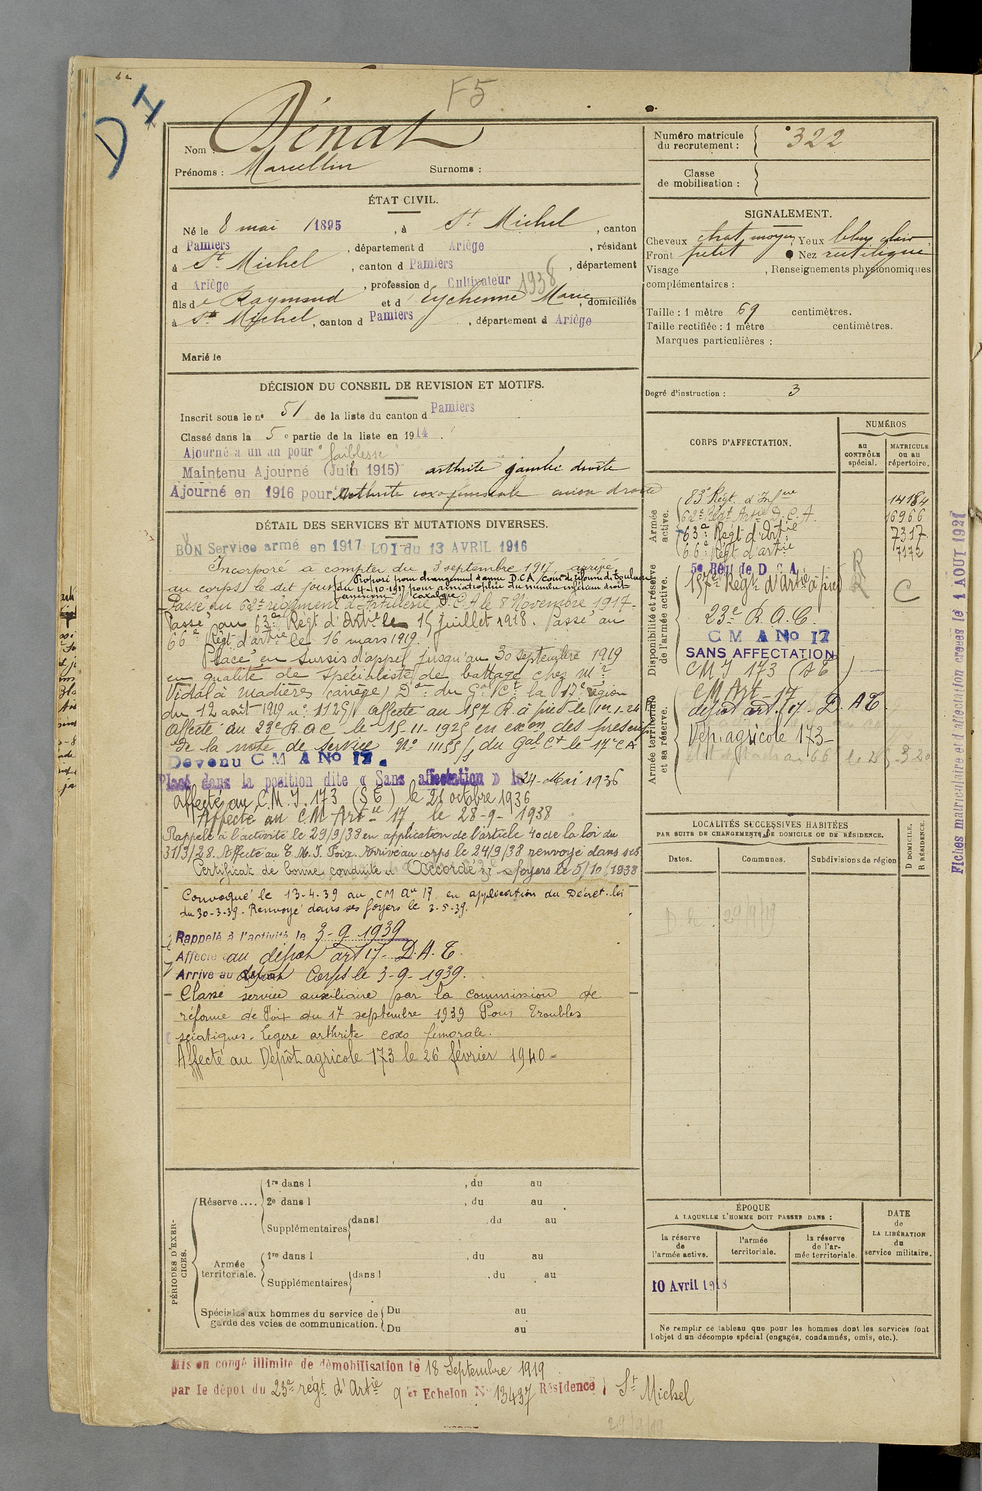 F5
D I
Nom : Dénat
Prénoms : Marcellin Surnoms :
Numéro matricule du recrutement : 322
Classe de mobilisation :
ÉTAT CIVIL.
Né le 8 mai 1895, à St Michel, canton
d Pamiers, département d Ariège, résidant
à St Michel, canton d Pamiers, département
d Ariège, profession d Cultivateur 1938
fils de Raymond et d Eychenne Marie, domiciliés
à St Michel, canton d Pamiers, département d Ariège
Marié le
SIGNALEMENT.
Cheveux chat. moyen Yeux bleu clair
Front petit Nez rectiligne
Visage , Renseignements physionomiques
complémentaires :
Taille : 1 mètre 69 centimètres.
Taille rectifiée : 1 mètre centimètres.
Marques particulières :
Degré d'instruction : 3
DÉCISION DU CONSEIL DE REVISION ET MOTIFS.
Inscrit sous le n° 51 de la liste du canton d Pamiers
Classé dans la 5e partie de la liste en 1914.
Ajourné à un an pour "faiblesse"
Maintenu Ajourné (Juin 1915) arthrite jambe droite
Ajourné en 1916 pour arthrite coxo-fémorale droite
DÉTAIL DES SERVICES ET MUTATIONS DIVERSES.
BON Service armé en 1917 LOI du 13 AVRIL 1916
Incorporé à compter du 3 septembre 1917, arrivé
au corps le dit jour.
Passé au 62e régiment d'artillerie D.C.A le 8 Novembre 1917.
Passé au 63e Régt d'Artie le 15 juillet 1918. Passé au
66e Régt d'artie le 16 mars 1919.
Placé en sursis d'appel jusqu'au 30 septembre 1919
en qualité de spécialiste de battage chez Mr
Vidal à Madières (ariège) Don du Gal Ct la 17e région
du 12 août 1919 n° 11251 affecté au 157 R à pied le 1er.1.24
Affecté au 23e R.A.C le 15-11-192 en exon des prescrip.
de la note de service N° 11155/ du Gal Ct le 17e CA
Devenu C M A No 17.
Placé dans la position dite « Sans affectation » le 24 Mai 1936
affecté au C.M.I. 173 (S E) le 21 octobre 1936
Affecté au C.M Artie 17 le 28-9-1938
Rappelé à l'activité le 29/9/38 en application de l'article 40 de la loi du
31/3/28. Affecté au C.M.I. Foix. Arrivé au corps le 24/9/38 renvoyé dans ses
foyers le 5/10/1938
Certificat de bonne conduite Accordé
Convoqué le 13-4-39 au CM Art 17 en application du Décret-loi
du 30-3-39. Renvoyé dans ses foyers le 3-5-39.
Rappelé à l'activité le 3-9 1939
Affecté au dépôt art 17 D.A.T.
Arrivé au Corps le 3-9-1939.
Classé service auxiliaire par la commission de
réforme de Foix du 17 septembre 1939 Pour Troubles
sciatiques. Légère arthrite coxo fémorale.
Affecté au Dépôt agricole 173 le 26 février 1940-
CORPS D'AFFECTATION.
NUMÉROS
au CONTRÔLE spécial.
MATRICULE ou au répertoire.
Armée active.
83e Régt. d'Infie 14184
62e Régt Artie D.C.A. 16966
63e Régt d'Artie 7317
66e Régt d'artie 7132
Disponibilité et réserve de l'armée active.
5e Régt de D.C.A.
157e Régt d'Artie à pied R C
23e R.A.C.
C M A No 17
SANS AFFECTATION
C M I 173 (S E)
Armée territoriale et sa réserve.
CM Art-17
dépôt art. 17 D.A.T.
Dép. agricole 173-
LOCALITÉS SUCCESSIVES HABITÉES
PAR SUITE DE CHANGEMENTS DE DOMICILE OU DE RÉSIDENCE.
Dates. Communes. Subdivisions de région
D DOMICILE. R RÉSIDENCE.
29/9/19
PÉRIODES D'EXERCICES.
Réserve .... 1re dans l , du au
2e dans l , du au
Supplémentaires dans l , du au
Armée territoriale. 1re dans l , du au
Supplémentaires dans l , du au
Spéciales aux hommes du service de garde des voies de communication. Du au
Du au
ÉPOQUE
A LAQUELLE L'HOMME DOIT PASSER DANS :
la réserve de l'armée active.
l'armée territoriale.
la réserve de l'armée territoriale.
DATE de LA LIBÉRATION du service militaire.
10 Avril 1918
Ne remplir ce tableau que pour les hommes dont les services font
l'objet d'un décompte spécial (engagés, condamnés, omis, etc.).
Mis en congé illimité de démobilisation le 18 Septembre 1919
par le dépôt du 23e régt d'Artie 9e Echelon No 13437 Résidence St Michel
29/9/19
Fiches matriculaire et d'affectation créées le 1 AOUT 1921